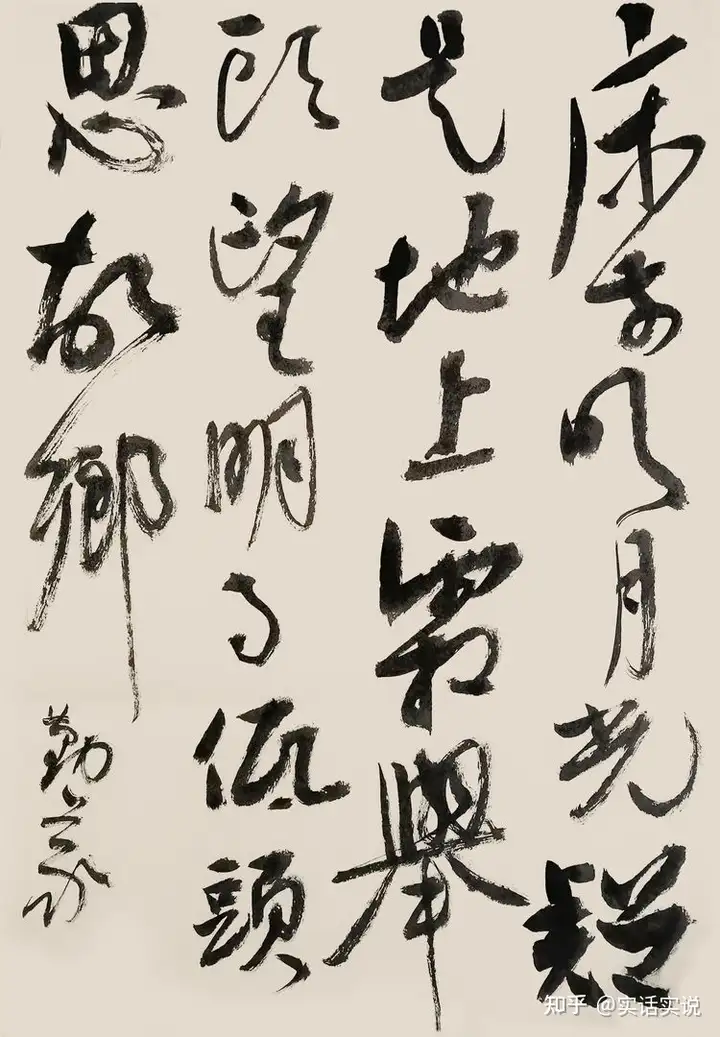 床前明月光疑
是地上霜舉
頭望明月低頭
思故鄉
知乎 @实话实说